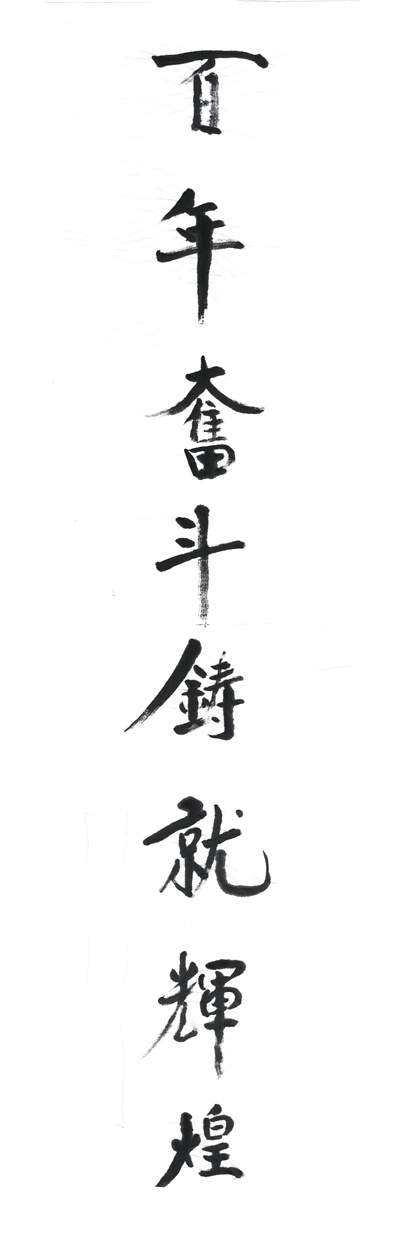 百年奮斗鑄就輝煌